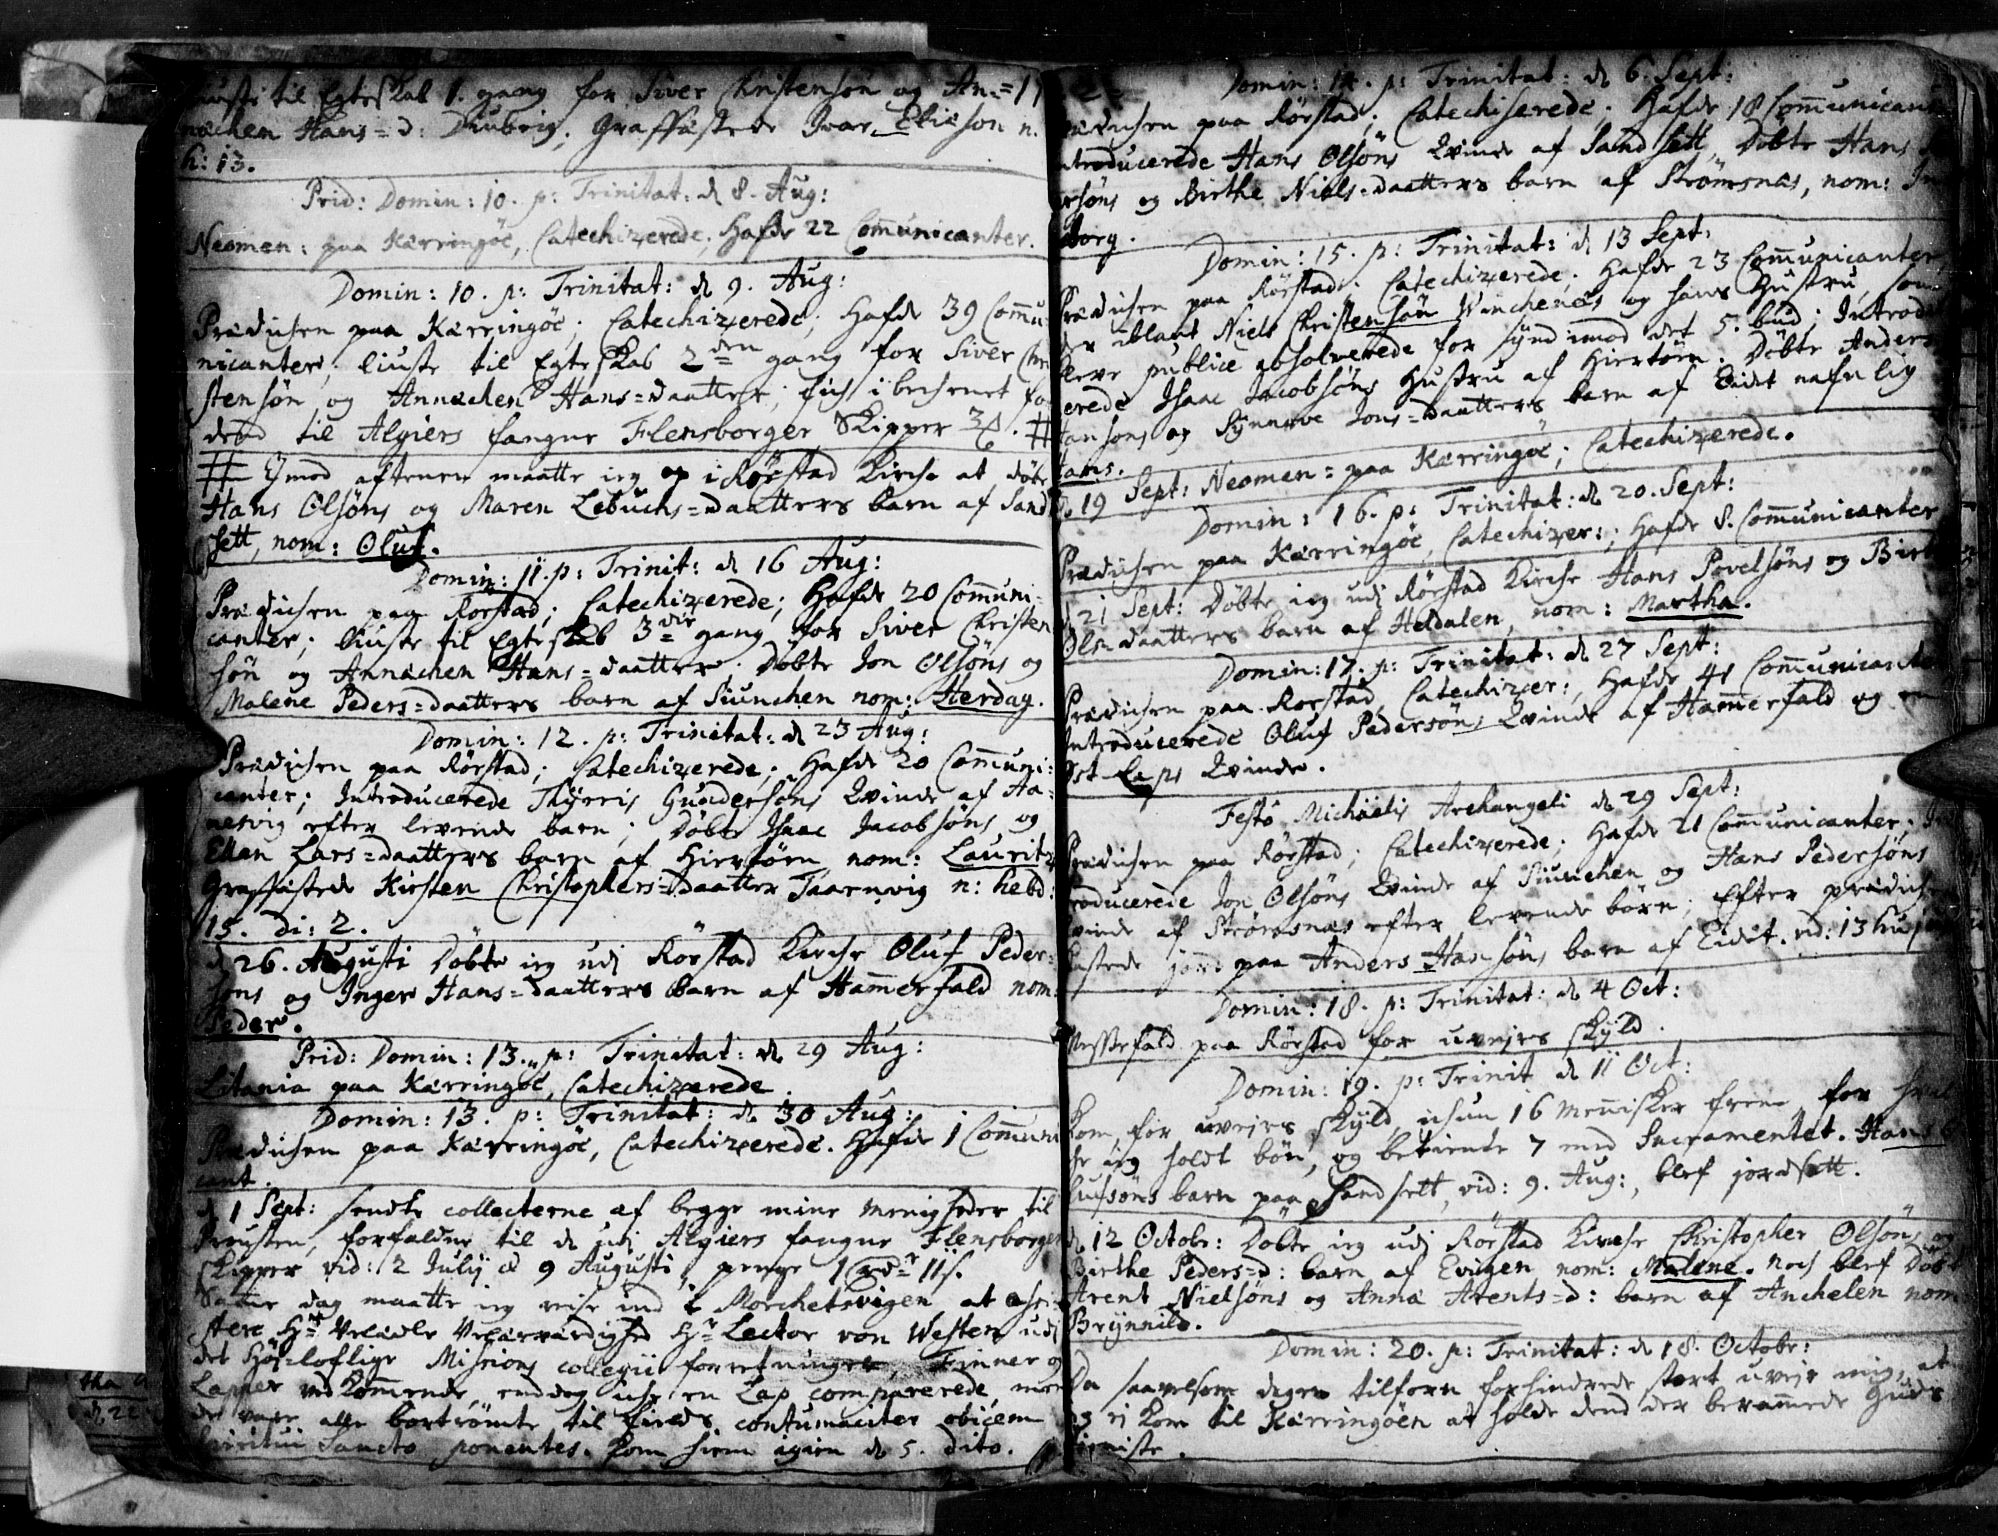 liuste til Egteskab 1. gang for Siver Christensøn og An=
nichen Hans=d: Diubvig; Graffæstede Ivar Ericson n.
h: 13.
Prid: Domin: 10. p: Trinitat: d 8. Aug:
Neomen: paa Kærringøe, Catechizerede; Hafde 22 Communicanter.
Domin: 10. p: Trinitat: d 9. Aug:
Prædichen paa Kærringøe; Catechizerede; Hafde 39 Commu-
nicanter; liuste til Egteskab 2den gang for Siver Chri
stensøn og Annichen Hans=daatter; fich i bechenet fo
dend til Algiers fangne Flensborger Skipper
# Imod aftenen maatte ieg op i Rørstad Kirche at døbe
Hans Olsøns og Maren Lebuchs=daatters barn af Sand
sett, nom: Oluf.
Domin: 11. p: Trinit: d 16 Aug:
Prædichen paa Rørstad; Catechizerede; Hafde 20 Communi-
canter; liuste til Egteskab 3die gang for Siver Christen
søn og Annichen Hans=daatter. Døbte Jon Olsøns og
Malene Peders=daatters barn af Siunchen nom: Herdag.
Domin: 12. p: Trinitat: d 23 Aug:
Prædichen paa Rørstad; Catechizerede; Hafde 20 Communi:
canter; Introducerede Thyrris Gundersøns Qvinde af
nesvig efter levende barn; Døbte Isaac Jacobsøns og
Ellen Lars=daatters barn af Hiertøen nom: Lauritz
Graffæstede Kirsten Christophers=daatter Taarnvig n: hebd:
15. di: 2.
d 26. Augusti Døbte ieg udj Rørstad Kirche Oluf Peder=
søns og Inger Hans=daatters barn af Hammerfald nom:
Peder.
Prid: Domin: 13. p: Trinitat: d 29 Aug:
Litania paa Kærringøe, Catechizerede.
Domin: 13. p: Trinitat: d 30 Aug:
Prædichen paa Kærringøe, Catechizerede. Hafde 1 Communi
cant.
d 1 Sept: sendte collecterne af begge mine Menigheder til
Provsten, forfaldne til de udj Algiers fangne Flensborger
Skipper vid: 2 Julij & 9 Augusti, penge 1 rdr 11 s.
Samme dag maatte ieg reise ind i Morchetsvigen, at
stere Hr Velædle Velærværdighed Hr Lector von Westen udj
det Høy=loflige Missions collegii forretninger, Finner og
Lapper vedkommende, enddog iche en Lap comparerede, men
de vare alle bortrømte til fields contumaciter obicem
Spiritui Sancto ponentes. Kom hiem igien d 5. dito.
Domin: 14. p: Trinitat: d 6. Sept:
Prædichen paa Rørstad; Catechiserede; Hafde 18 Communicant
Introducerede Hans Olsøns Qvinde af Sandsett, Døbte Hans
ersøns og Birthe Niels=daatters barn af Strømsnæs, nom: In
borg.
Domin: 15. p: Trinitat: d 13 Sept:
Prædichen paa Rørstad; Catechizerede; Hafde 23 Communicanter
der iblant Niels Christensøn Winchenes og hans Hustru, som
bleve publicè absolverede for synd imod det 5. bud; Introdu
cerede Isaac Jacobsøns Hustru af Hiertøen. Døbte Anders
Hansøns og Synneve Jons=daatters barn af Eidet nafnlig
Hans.
d 19 Sept: Neomen= paa Kærringøe; Catechizerede.
Domin: 16. p: Trinitat: d 20. Sept:
Prædichen paa Kærringøe, Catechizer:; Hafde 8. Communicanter
d 21 Sept: Døbte ieg udj Rørstad Kirche Hans Povelsøns og Birt
Ols=daatters barn af Heldalen, nom: Martha.
Domin: 17. p: Trinitat: d 27 Sept:
Prædichen paa Rørstad, Catechizer:, Hafde 41 Communicanter
Introducerede Oluf Pedersøns Qvinde af Hammerfald og en
Øst-Laps Qvinde.
Festo Michaelis Archangeli d 29 Sept:
Prædichen paa Rørstad; Catechizerede; Hafde 21 Communicanter; Int
roducerede Jon Olsøns Qvinde af Siunchen og Hans Pedersøns
Qvinde af Strømsnæs efter levende børn; Efter prædichen
kastede jord paa Anders Hansøns barn af Eidet. vid: 13 hujus
Domin: 18. p: Trinitat: d 4 Oct:
Messefald paa Rørstad for uvejrs skyld.
Domin: 19. p: Trinit d 11 Oct:
Kom, for uvejrs skyld, ichun 16 Mennisker frem, for hvil
che ieg holdt bøn, og betiente 7 med Sacramentet. Hans O
lufsøns barn paa Sandsett, vid: 9. Aug:, blef jordsatt.
d 12 Octobr: Døbte ieg udj Rørstad Kirche Christopher Olsøns og
Birthe Peders=d: barn af Evigen nom: Malene. Noch blef Døbt
Arent Nielsøns og Anna Arents=d: barn af Anchelen nom:
Brynnild.
Domin: 20. p: Trinitat: d 18. Octobr:
Da saavelsom dagen tilforn forhindrede stort uvejr mig, at
ieg ei kom til Kærringøen at holde dend der berammede Guds
tieniste.